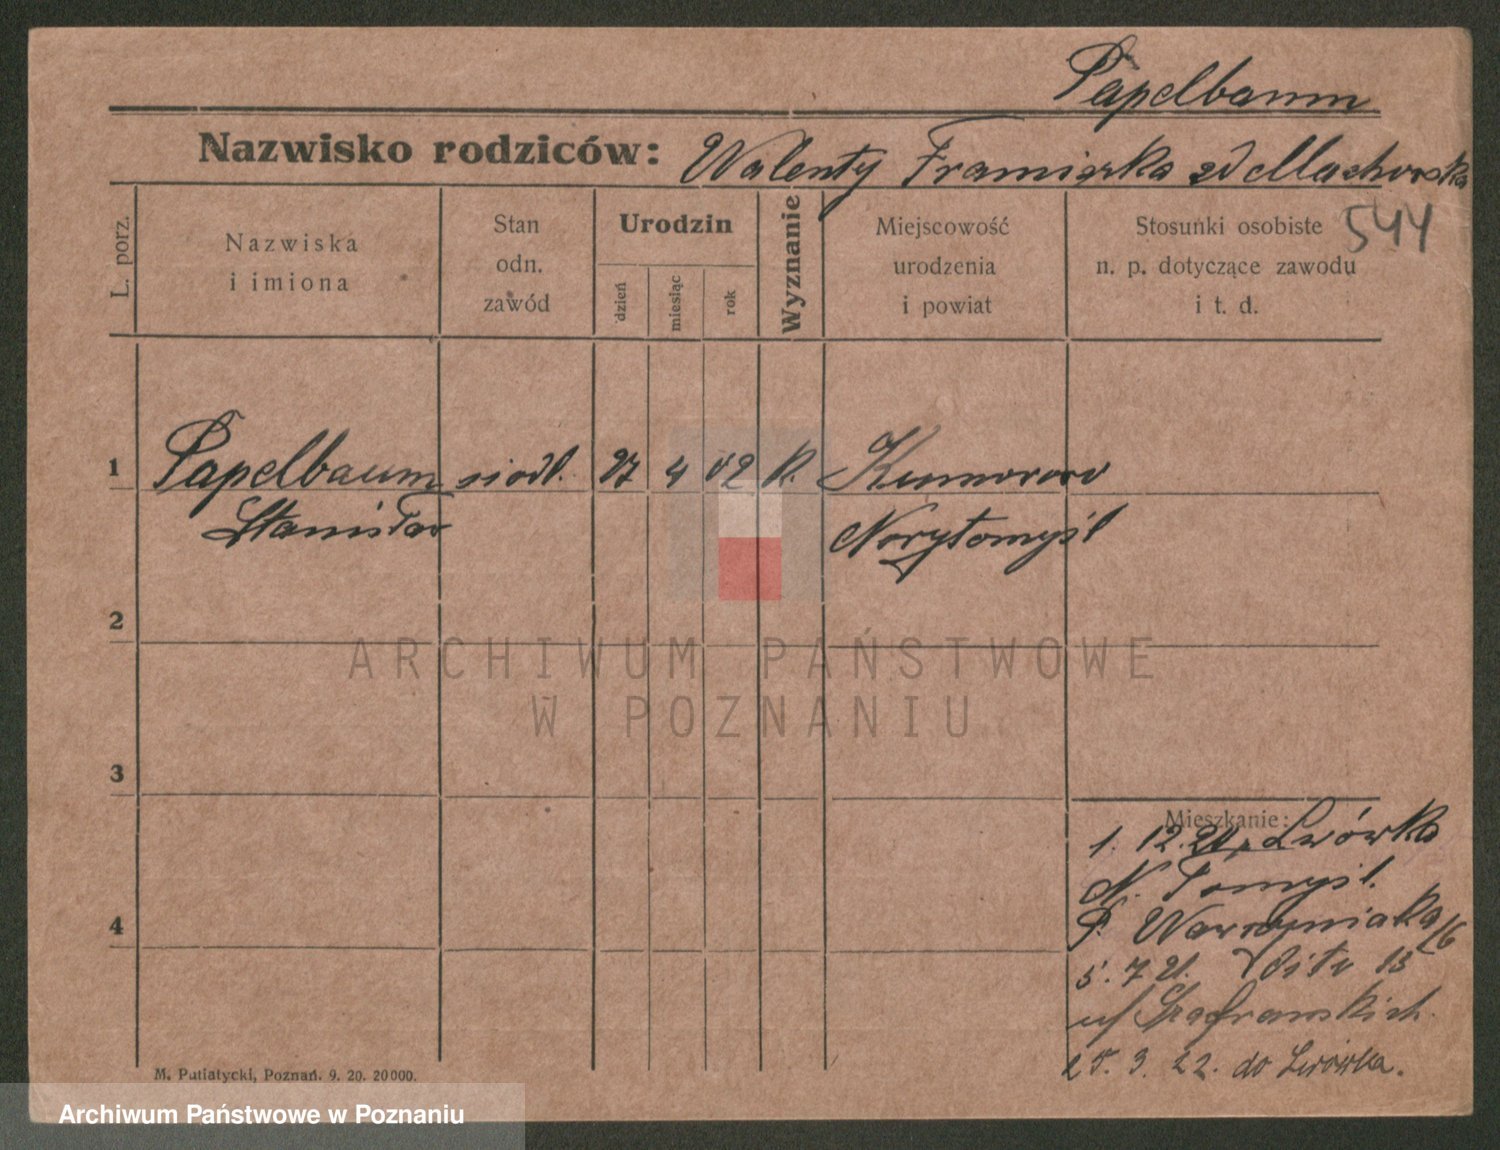 Papelbaum
Nazwisko rodziców: Walenty Franciszka zd Machorska
544
L. porz.
Nazwiska
i imiona
Stan
odn.
zawód
Urodzin
dzień
miesiąc
rok
Wyznanie
Miejscowość
urodzenia
i powiat
Stosunki osobiste
n. p. dotyczące zawodu
i t. d.
1 Papelbaum siodl. 27 4 02 k. Kumorowo
Stanisław Nowytomyśl
2
3
4
Mieszkanie:
1. 12. 20, Lwówka
N. Tomyśl.
P. Wawrzyniaka 16
5. 7 21. 13
u/ Szafranskich.
25. 3. 22. do Lwówka.
M. Putiatycki, Poznań. 9. 20. 20000.
ARCHIWUM PAŃSTWOWE
W POZNANIU
Archiwum Państwowe w Poznaniu